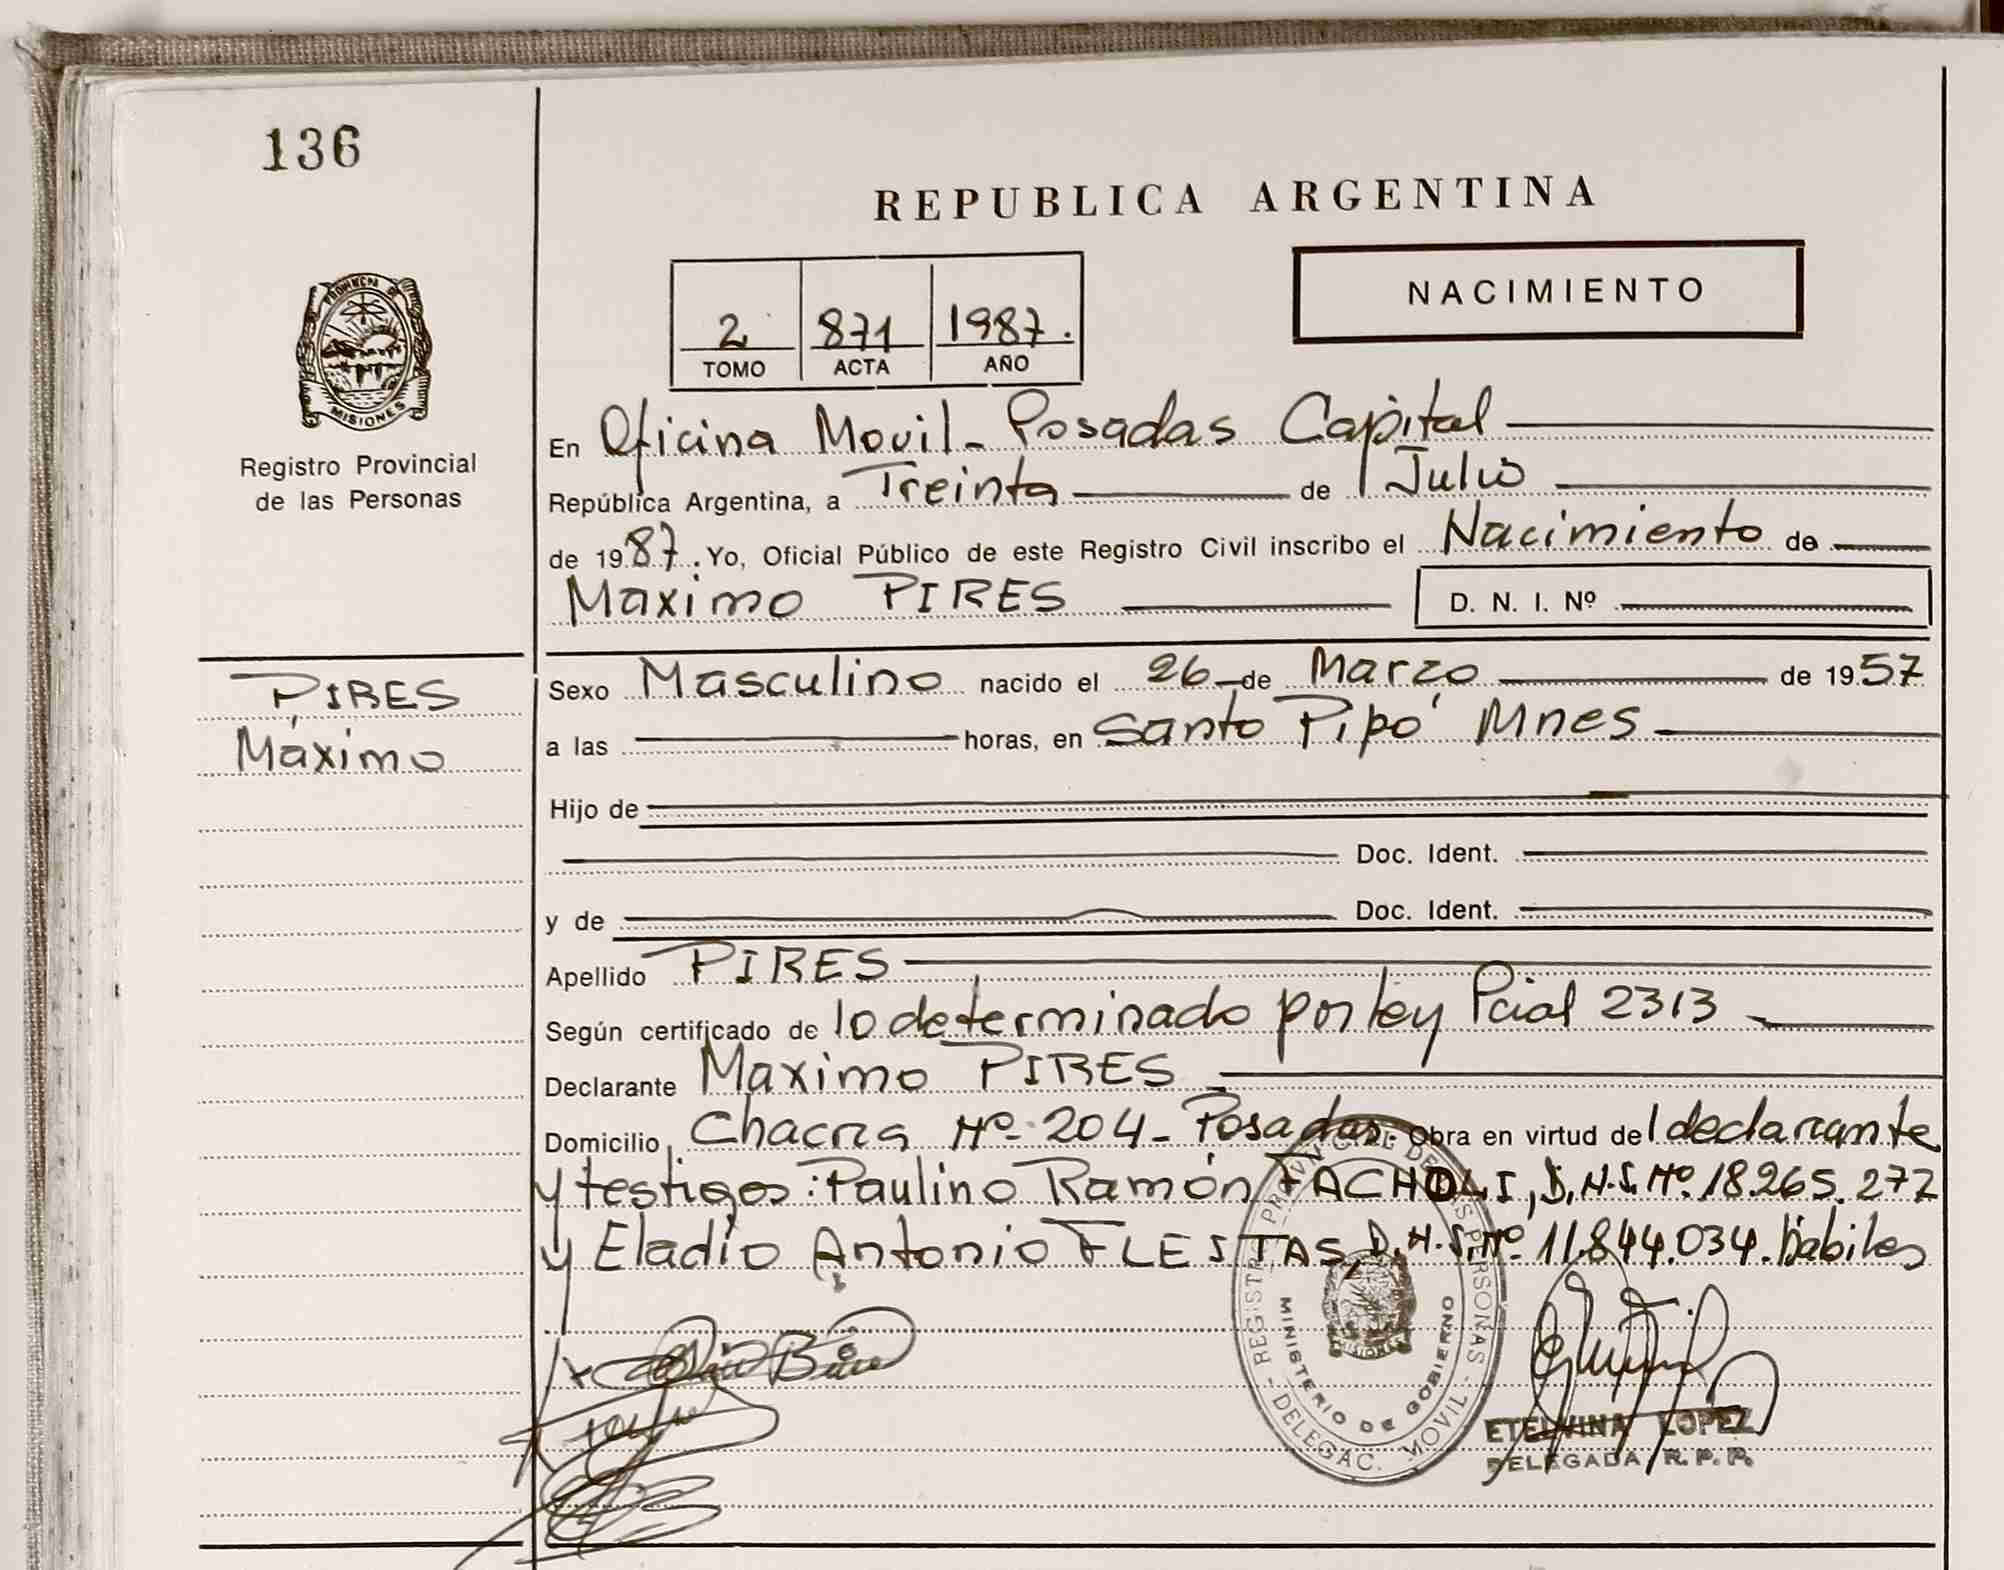 136
REPUBLICA ARGENTINA
NACIMIENTO
2 871 1987.
TOMO ACTA AÑO
PROVINCIA DE
MISIONES
Registro Provincial
de las Personas
En Oficina Movil - Posadas Capital
República Argentina, a Treinta de Julio
de 1987. Yo, Oficial Público de este Registro Civil inscribo el Nacimiento de
Maximo PIRES D. N. I. Nº
PIRES
Máximo
Sexo Masculino nacido el 26 de Marzo de 1957
a las horas, en Santo Pipó Mnes
Hijo de
Doc. Ident.
y de Doc. Ident.
Apellido PIRES
Según certificado de lo determinado por ley Pcial 2313
Declarante Maximo PIRES
Domicilio Chacra Nº 204 - Posadas. Obra en virtud del declarante
y testigos: Paulino Ramón FACHOLI, D.N.I. Nº 18.265.277
y Eladio Antonio FLEITAS, D.N.I. Nº 11.844.034. hábiles
REGISTRO PROVINCIAL DE LAS PERSONAS
MINISTERIO DE GOBIERNO
- DELEGAC. MOVIL -
ETELVINA LOPEZ
DELEGADA R. P. P.